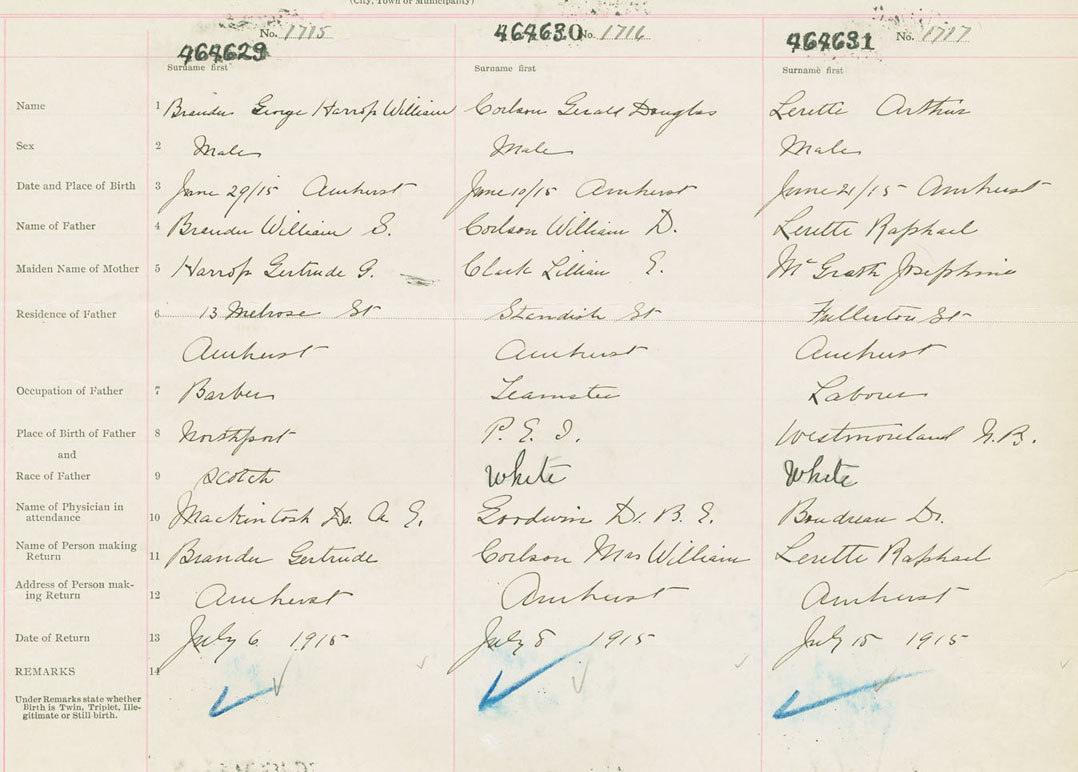 (City, Town or Municipality)
No. 1715 No. 1716 No. 1717
464629 464630 464631
Surname first Surname first Surname first
Name 1 Brander George Harrop William Coelson Gerald Douglas Lerette Arthur
Sex 2 Male Male Male
Date and Place of Birth 3 June 29/15 Amherst June 10/15 Amherst June 21/15 Amherst
Name of Father 4 Brander William S. Coelson William D. Lerette Raphael
Maiden Name of Mother 5 Harrop Gertrude G. Clark Lillian E. McGrath Josephine
Residence of Father 6 13 Melrose St Standish St Fullerton St
Amherst Amherst Amherst
Occupation of Father 7 Barber Teamster Laborer
Place of Birth of Father 8 Northport P. E. I. Westmoreland N.B.
and
Race of Father 9 Scotch White White
Name of Physician in
attendance 10 Mackintosh Dr. A. E. Goodwin Dr. B. E. Boudreau Dr.
Name of Person making
Return 11 Brander Gertrude Coelson Mrs William Lerette Raphael
Address of Person mak-
ing Return 12 Amherst Amherst Amherst
Date of Return 13 July 6 1915 July 8 1915 July 15 1915
REMARKS 14
Under Remarks state whether
Birth is Twin, Triplet, Ille-
gitimate or Still-birth.